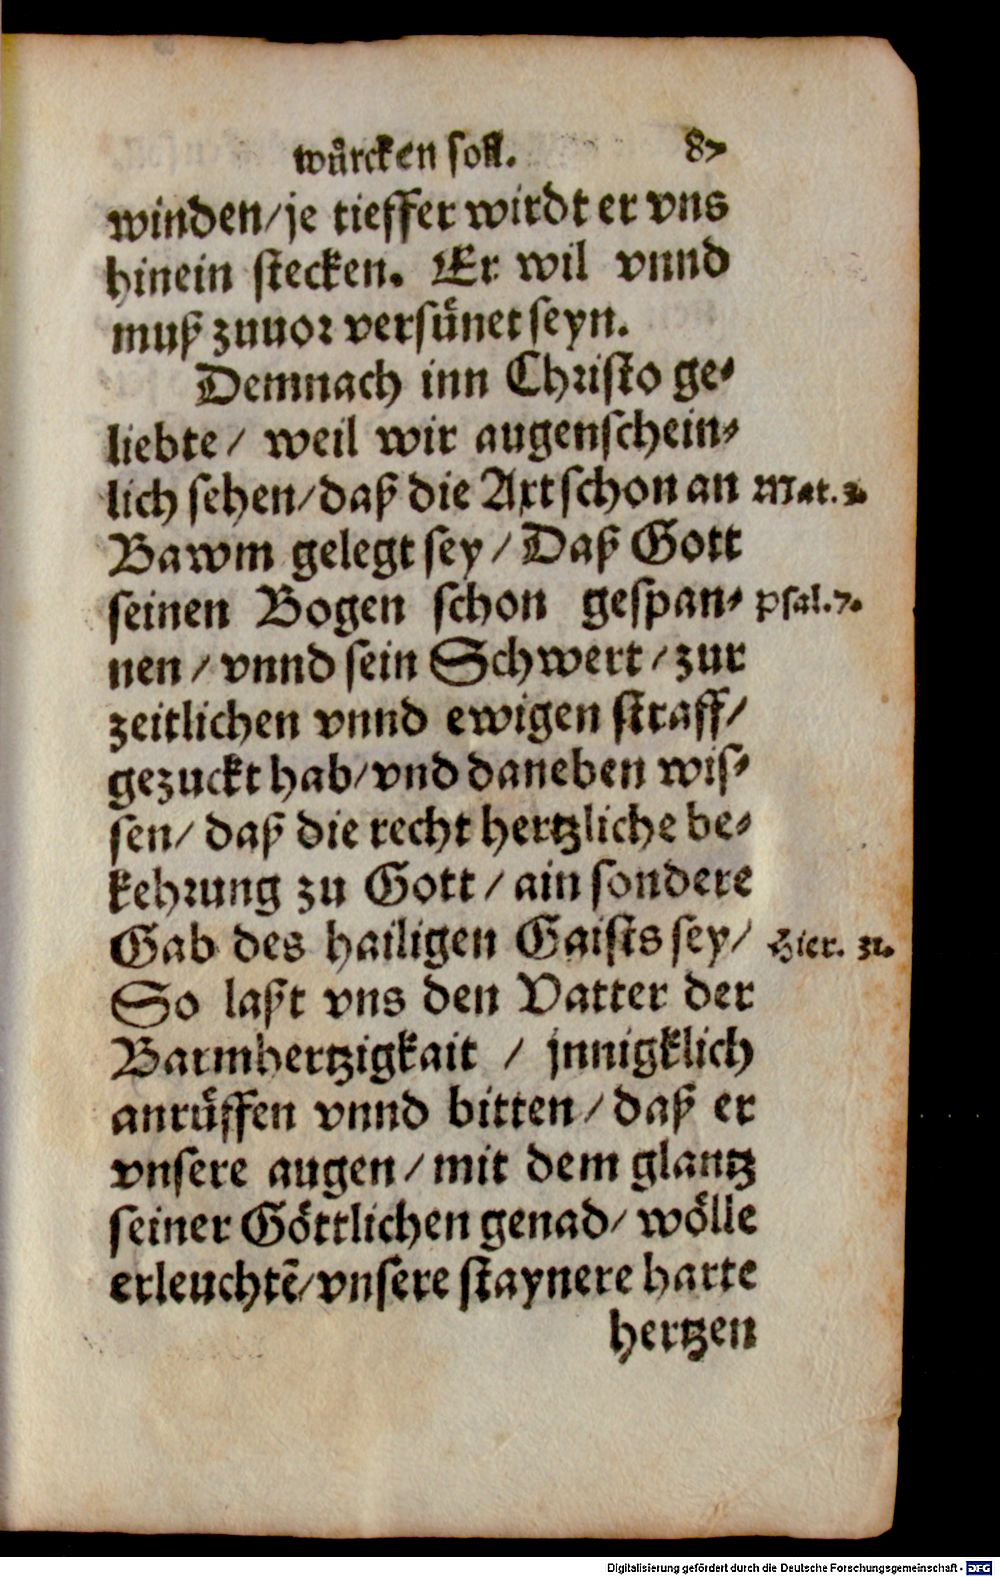 wuͤrcken soll. 87
winden/je tieffer wirdt er vns
hinein stecken. Er wil vnnd
muß zuuor versuͤnet seyn.
Demnach inn Christo ge⸗
liebte/ weil wir augenschein⸗
lich sehen/daß die Axt schon an Mat. 3
Bawm gelegt sey/Daß Gott
seinen Bogen schon gespan⸗ Psal.7.
nen/vnnd sein Schwert/zur
zeitlichen vnnd ewigen straff/
gezuckt hab/vnd daneben wis⸗
sen/ daß die recht hertzliche be⸗
kehrung zu Gott/ain sondere
Gab des hailigen Gaists sey/ Hier. 31.
So laßt vns den Vatter der
Barmhertzigkait / jnnigklich
anruͤffen vnnd bitten/daß er
vnsere augen/mit dem glantz
seiner Goͤttlichen genad/ woͤlle
erleuchtẽ/vnsere staynere harte
hertzen
Digitalisierung gefördert durch die Deutsche Forschungsgemeinschaft - DFG